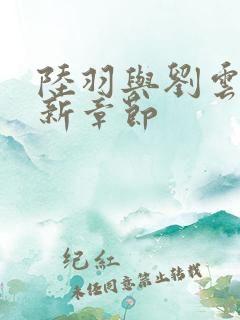 陸羽與劉雲
新章節
紀紅
未经同意禁止转载